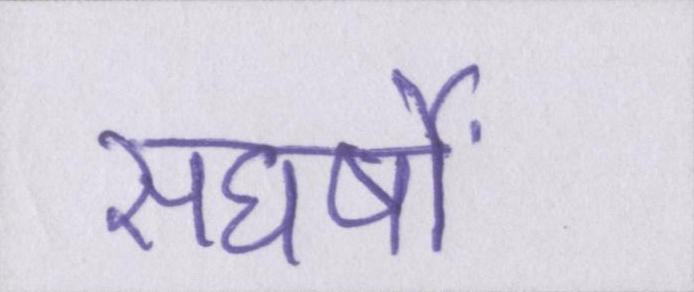 सघर्षों